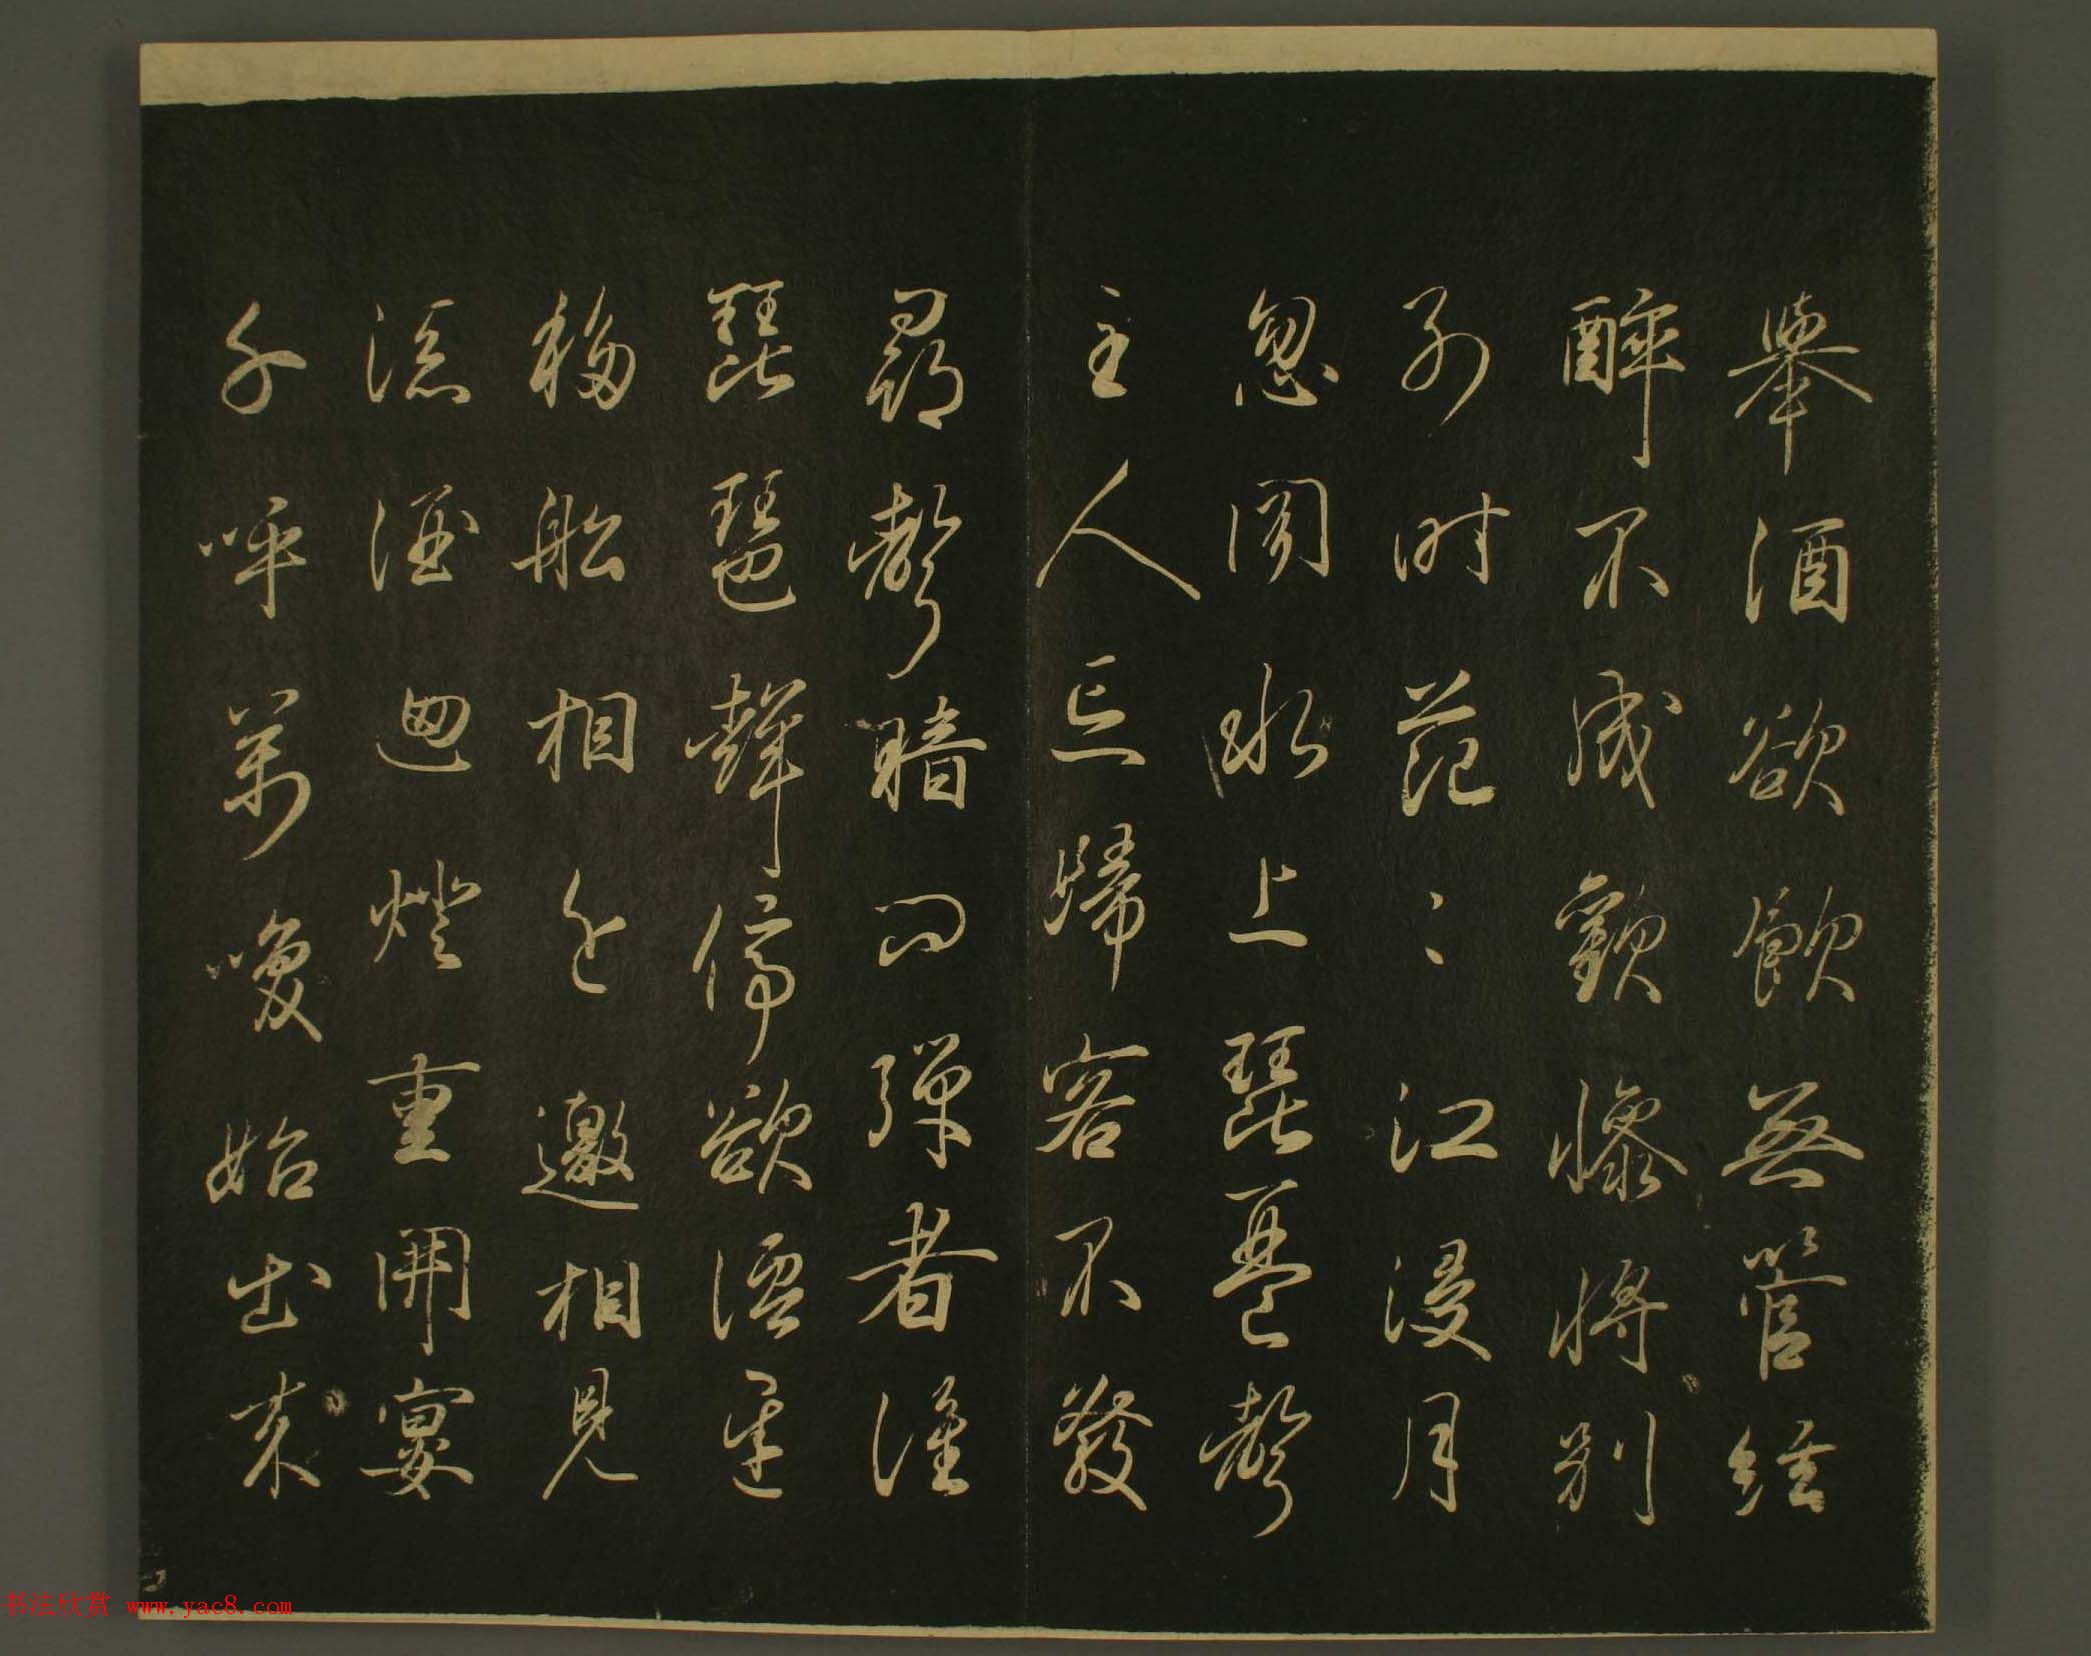 舉酒欲飲無管絃
醉不成歡慘將別
別時茫〻江浸月
忽聞水上琵琶聲
主人忘歸客不發
尋聲暗問彈者誰
琵琶聲停欲語遲
移船相近邀相見
添酒迴燈重開宴
千呼萬喚始出来
书法欣赏 www.yac8.com